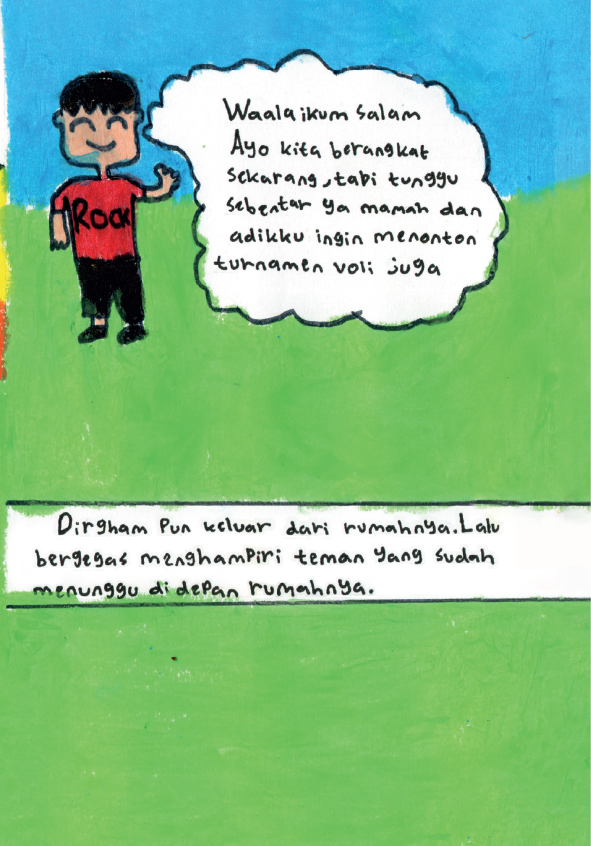 ROCK
Waalaikum salam
Ayo kita berangkat
sekarang, tapi tunggu
sebentar ya mamah dan
adikku ingin menonton
turnamen voli juga
Dirgham Pun keluar dari rumahnya. Lalu
bergegas menghamPiri teman yang sudah
menunggu di dePan rumahnya.